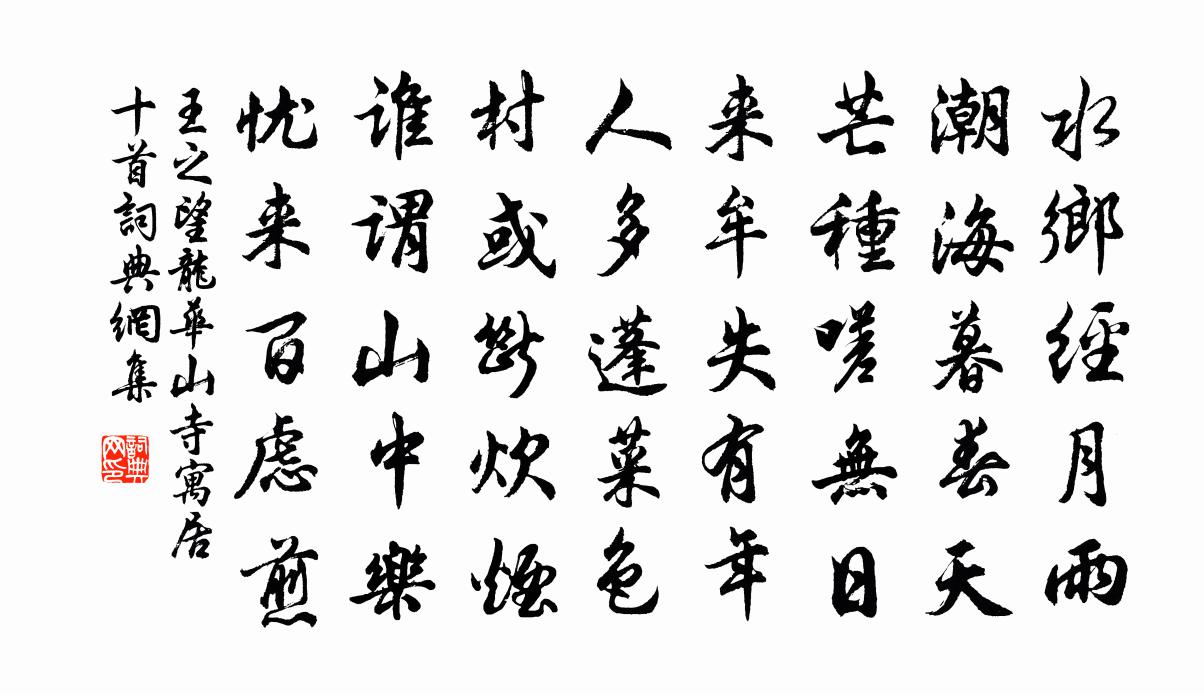 水鄉經月雨
潮海暮春天
芒種嗟無日
来牟失有年
人多蓬菜色
村或斷炊煙
谁謂山中樂
忧来百慮煎
王之望龍華山寺寓居
十首詞典網集
詞典
网印